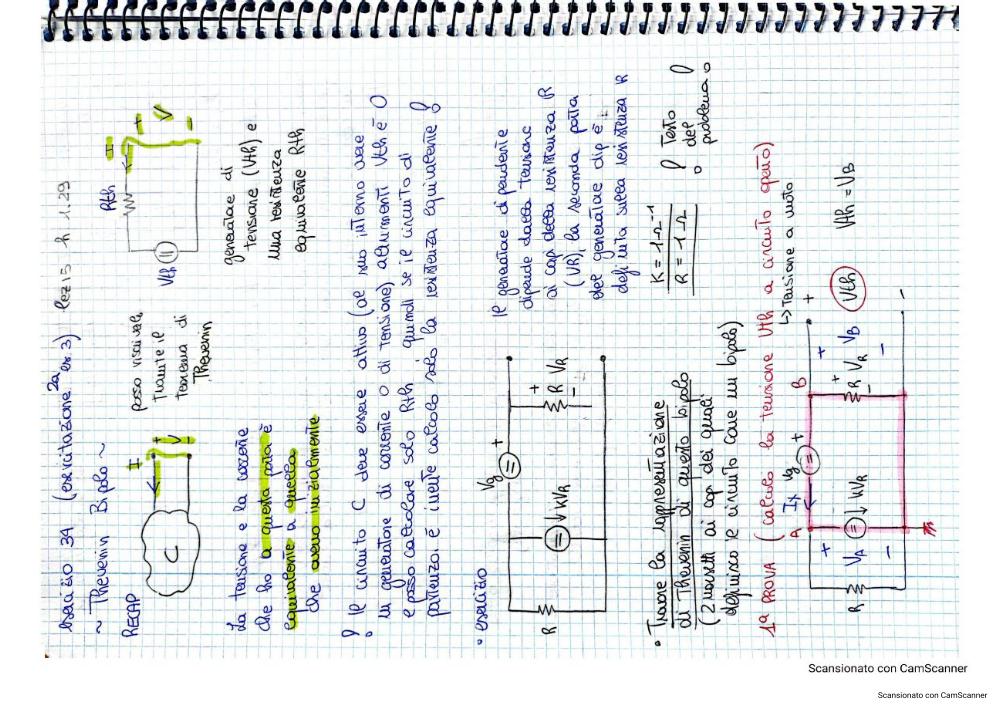 esercizio 34 (esercitazione 2a es. 3) lez 15 h 1.29
~ Thevenin Bipolo ~
RECAP
I
+
V
-
C
posso visualiz.
tramite il
teorema di
Thevenin
Rth
I
+
V
-
Vth
La tensione e la corrente
che ho a questa porta è
equivalente a quella
che avevo inizialmente
generatore di
tensione (Vth) e
una resistenza
equivalente Rth
! Il circuito C deve essere attivo (al suo interno avere
un generatore di corrente o di tensione), altrimenti Vth è 0
e posso calcolare solo Rth quindi se il circuito di
partenza è inerte calcolo solo la resistenza equivalente!
• esercizio
Vg
+
R
kVR
+
R VR
-
Il generatore dipendente
dipende dalla tensione
ai capi della resistenza R
(VR), la seconda porta
del generatore dip è
definita sulla resistenza R
• Trovare la rappresentazione
di Thevenin di questo bipolo
(2 morsetti ai capi dei quali
definisco il circuito come un bipolo)
K = 1 Ω⁻¹
R = 1 Ω
! Testo
del
problema!
1ª PROVA (calcolo la tensione Vth a circuito aperto)
↳ Tensione a vuoto
A Ix Vg + B
+
R VA
-
kVR
+
R VR VB
-
+
Vth
-
Vth = VB
Scansionato con CamScanner
Scansionato con CamScanner